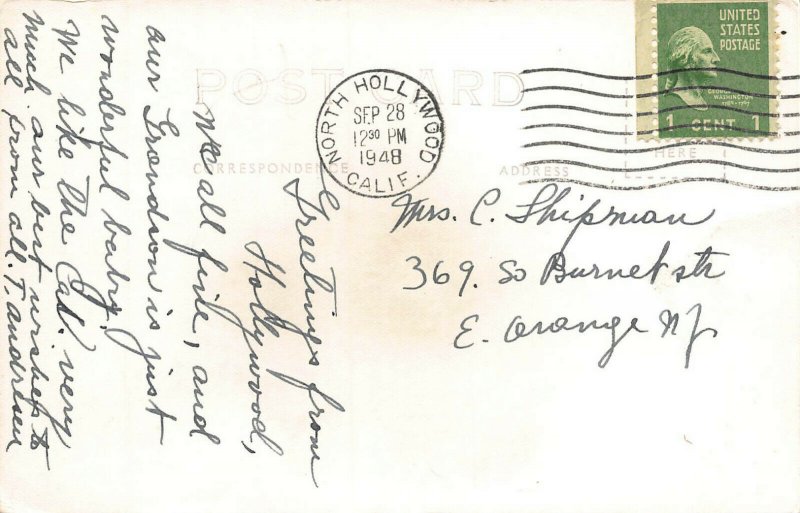 POST CARD
CORRESPONDENCE
ADDRESS
HERE
NORTH HOLLYWOOD
SEP 28
12 30 PM
1948
CALIF.
UNITED
STATES
POSTAGE
GEORGE
WASHINGTON
1789-1797
1 CENT 1
Mrs. C. Shipman
369. So Burnet str
E. Orange NJ
Greetings from
Hollywood,
We all fine, and
our Grandson is just
wonderful baby.
We like the Cal. very
much our best wishes to
all from all. T. Andresen